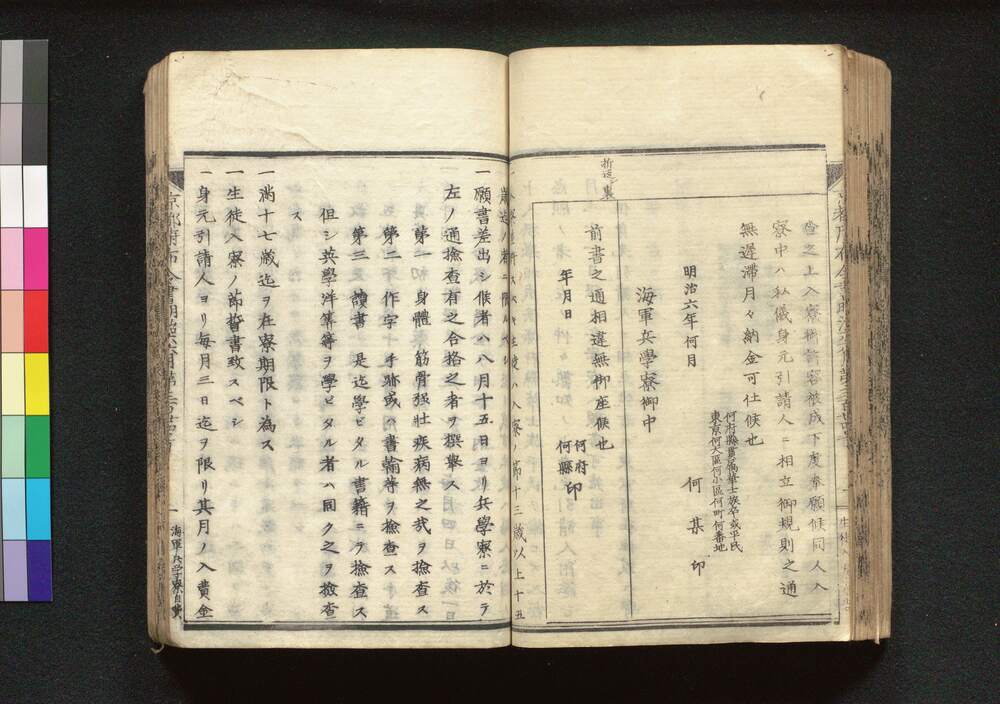 登之上入寮御許容被成下度奉願候同人入
寮中ハ私儀身元引請人ニ相立御規則之通
無遅滞月々納金可仕候也
何府縣貫屬華士族卒或平民
東京何大區何小區何町何番地
何某印
明治六年何月
海軍兵學寮御中
前書之通相違無御座候也
年月日
何府
何縣
印
折返シ裏
歳迄ノ者ニ限ルベシ
一願書差出シ候者ハ八月十五日ヨリ兵學寮ニ於テ
左ノ通撿查有之合格之者ヲ撰擧ス
第一初 身體 筋骨强壮疾病無之哉ヲ撿查ス
第二 作字 手跡或ハ書牘等ヲ撿查ス
第三 讀書 是迄學ビタル書籍ニテ撿查ス
但シ英學洋筭等ヲ學ビタル者ハ同ク之ヲ撿查
ス
一満十七歳迄ヲ在寮期限ト為ス
一生徒入寮ノ節誓書致スベシ
一身元引請人ヨリ每月三日迄ヲ限リ其月ノ入費金
海軍兵学寮自費